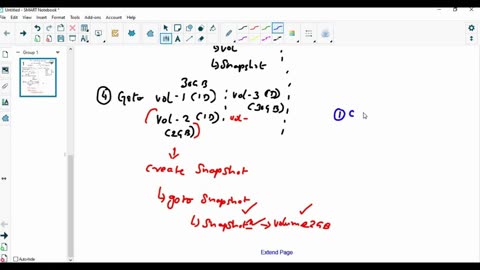 Untitled - SMART Notebook
File Edit View Insert Format Tools Add-ons Account Help
Group 1
↳ vol
↳ Snapshot
30GB
④ Goto vol-1 (1D) vol-3 (1D)
(30GB)
(vol-2 (1D) vol-
(2GB))
↓
create Snapshot
↳ goto Snapshot
↳ Snapshot → volume 2GB
① C
Extend Page
Auto-hide